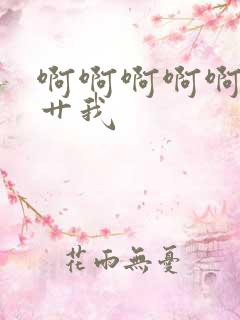 啊啊啊啊啊
艹我
花雨無憂